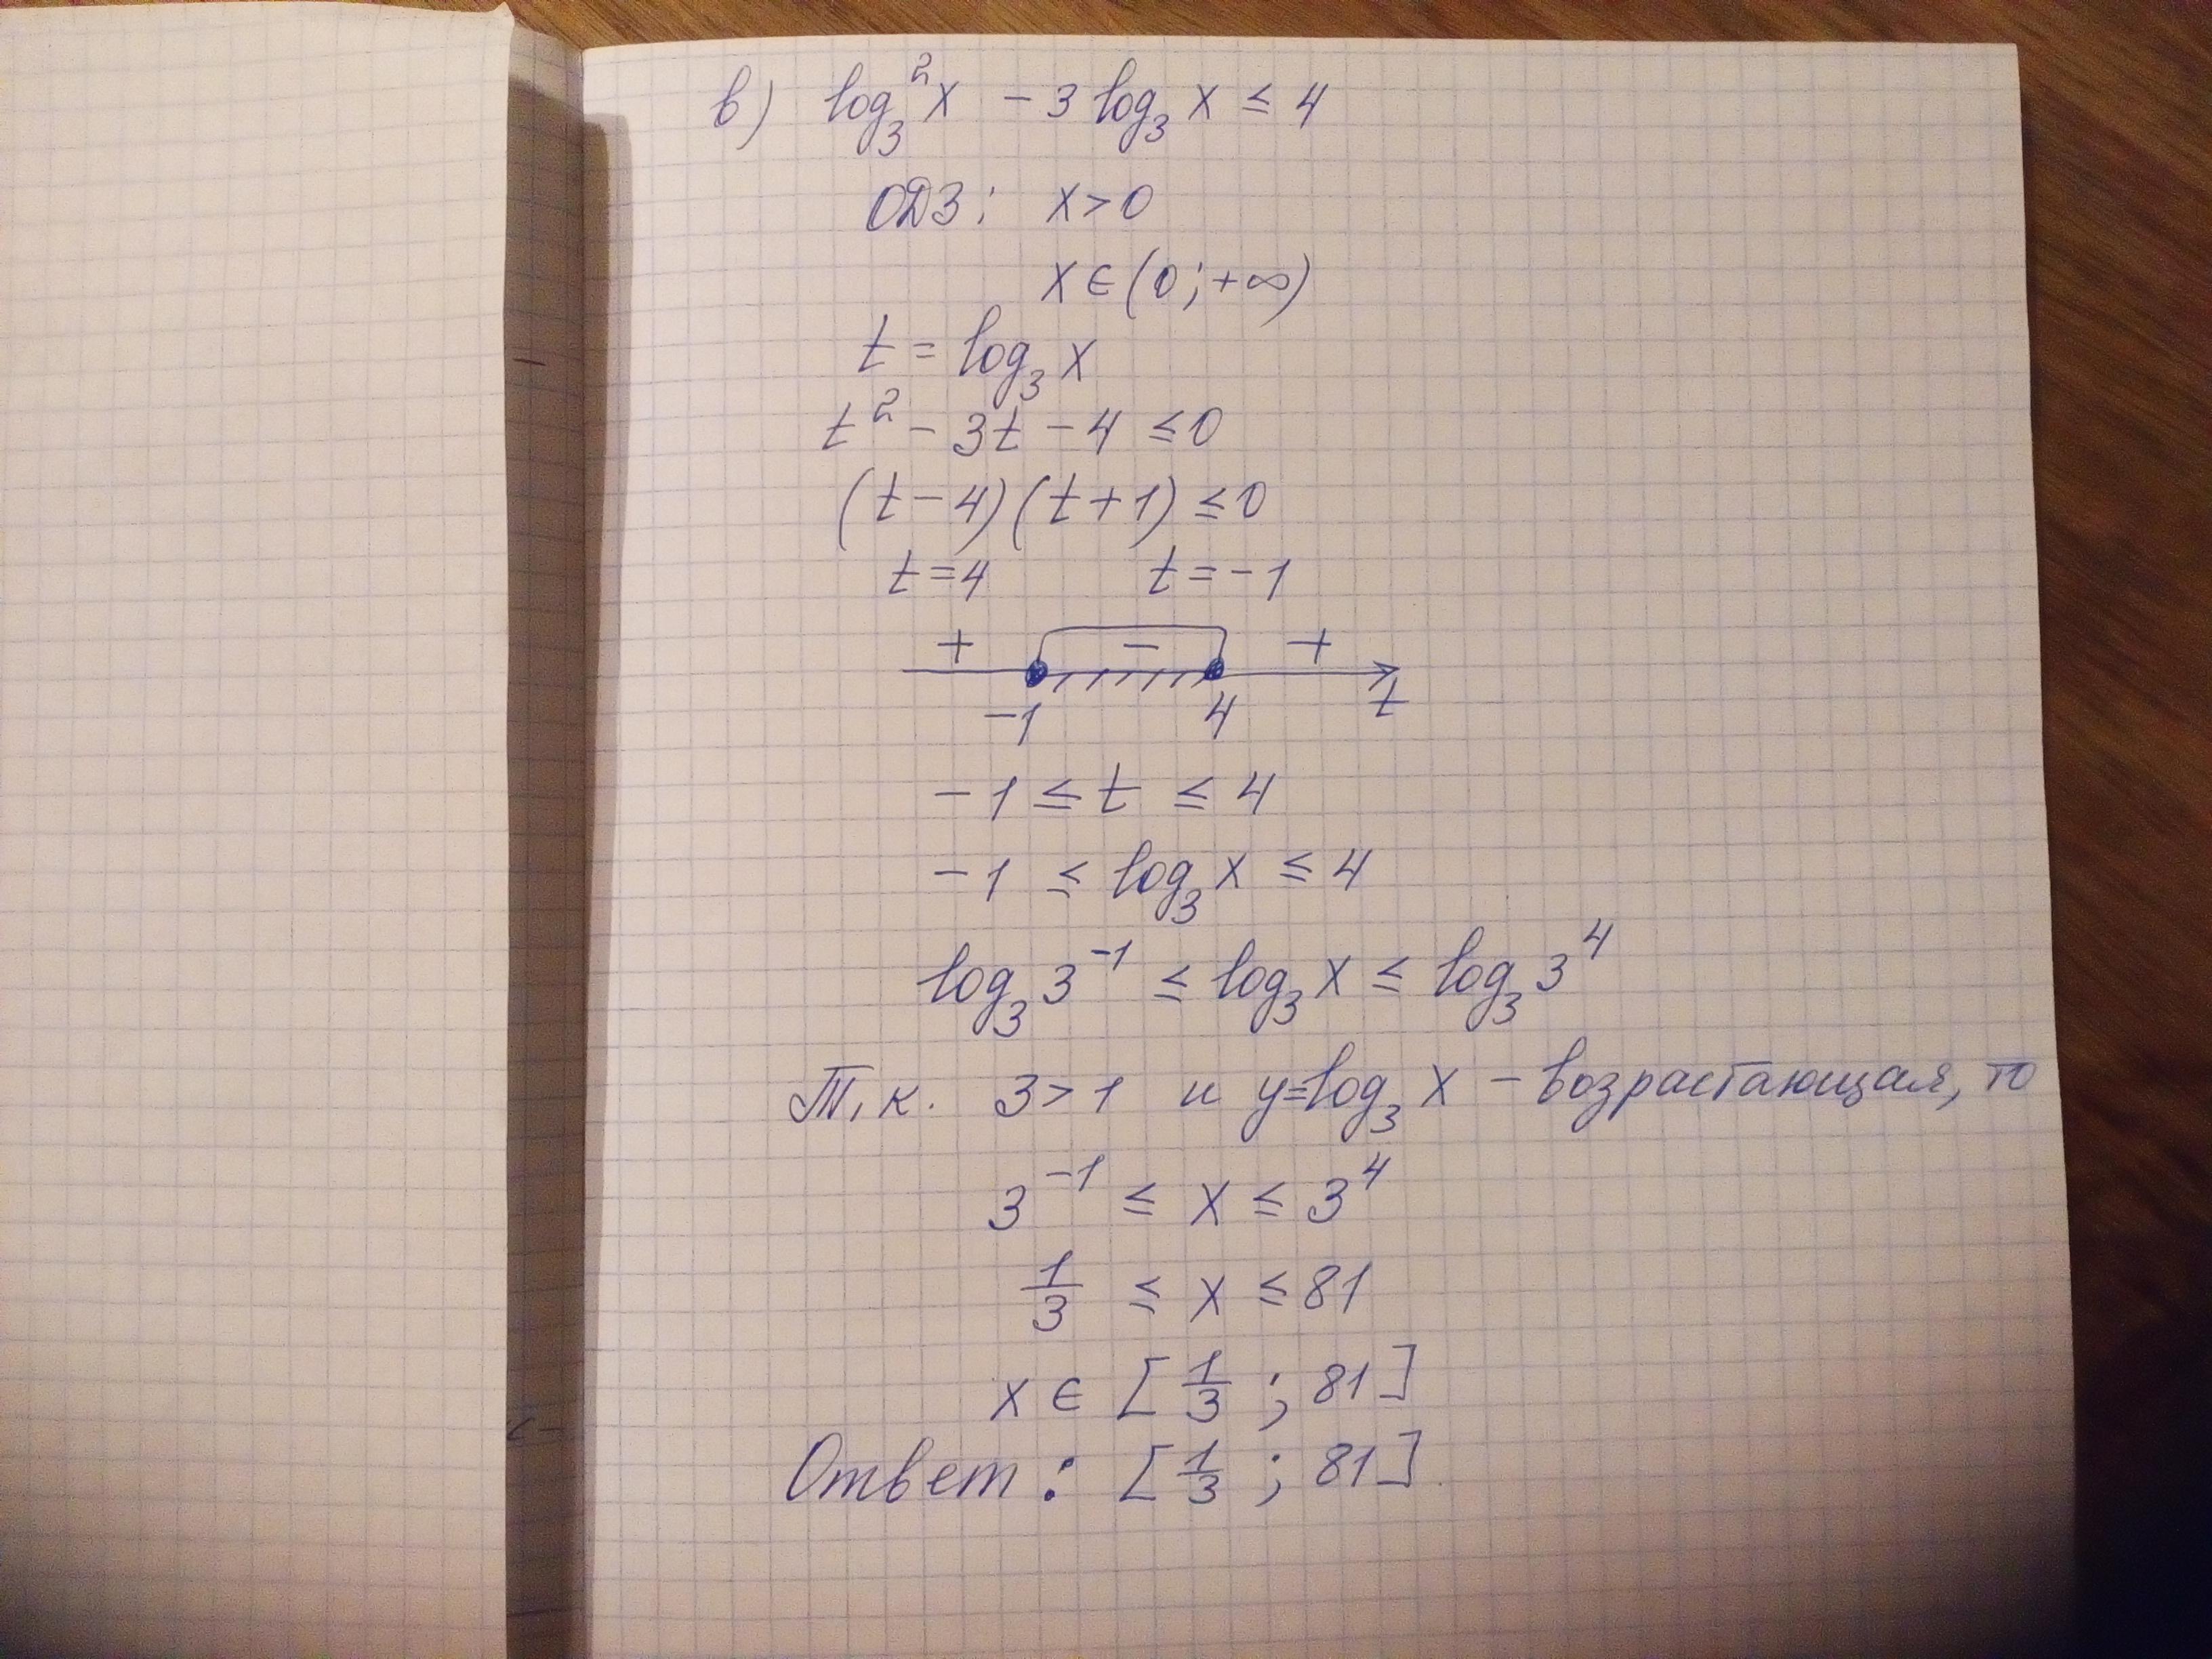 в) log₃²x - 3 log₃ x ≤ 4
ОДЗ: x > 0
x ∈ (0; +∞)
t = log₃ x
t² - 3t - 4 ≤ 0
(t - 4)(t + 1) ≤ 0
t = 4 t = -1
+ - +
-1 4 t
-1 ≤ t ≤ 4
-1 ≤ log₃ x ≤ 4
log₃ 3⁻¹ ≤ log₃ x ≤ log₃ 3⁴
Т.к. 3 > 1 и y = log₃ x - возрастающая, то
3⁻¹ ≤ x ≤ 3⁴
1/3 ≤ x ≤ 81
x ∈ [1/3 ; 81]
Ответ: [1/3 ; 81].